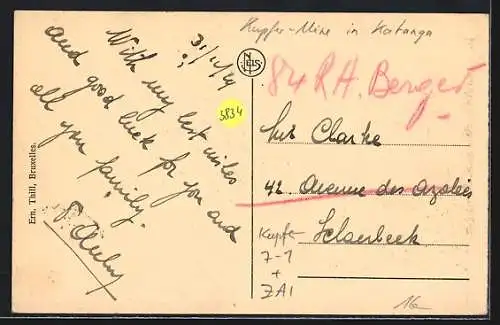 Kupfer-Mine in Katanga
31/12/29
With my best wishes
and good luck for you and
all you family.
3834
NELS
84 R H. Berger
Clarke
42 Avenue des Azalées
Schaerbeek
Kupfer
7-1
+
ZAI
16-
Ern. Thill, Bruxelles.